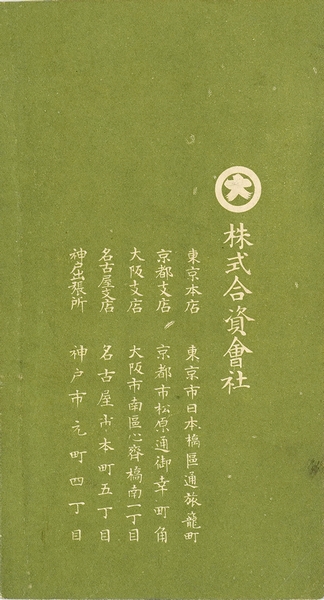 大
株式合資會社
東京本店 東京市日本橋區通旅籠町
京都支店 京都市松原通御幸町角
大阪支店 大阪市南區心齊橋南一丁目
名古屋支店 名古屋市本町五丁目
神戸出張所 神戸市元町四丁目